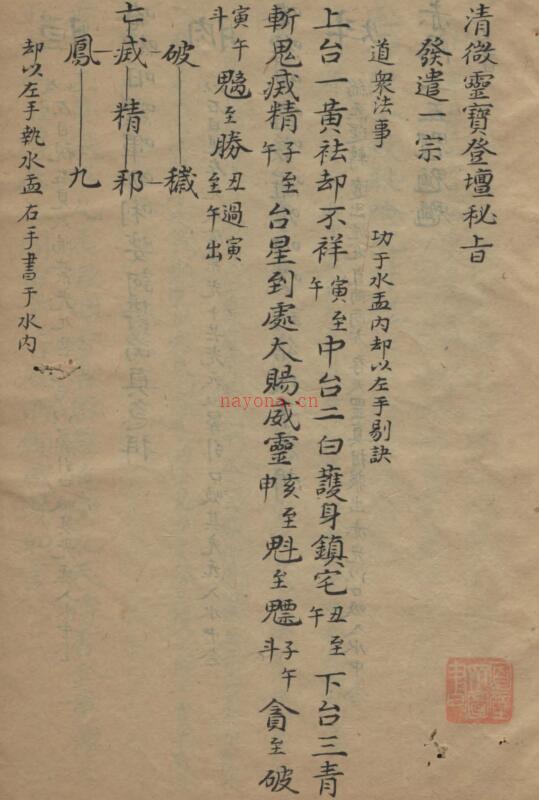 清微靈寶登壇秘旨
發遣一宗
道衆法事 功于水盂内却以左手剔訣
上台一黃祛却不祥寅至午中台二白護身鎮宅丑至午下台三青
斬鬼滅精子至午台星到處大賜威靈亥至申魁至魒子午斗貪至破
寅午斗魁至勝丑過寅至午出
破 穢
亡滅精邪
鳳 九
却以左手執水盂右手書于水内
nayona.cn